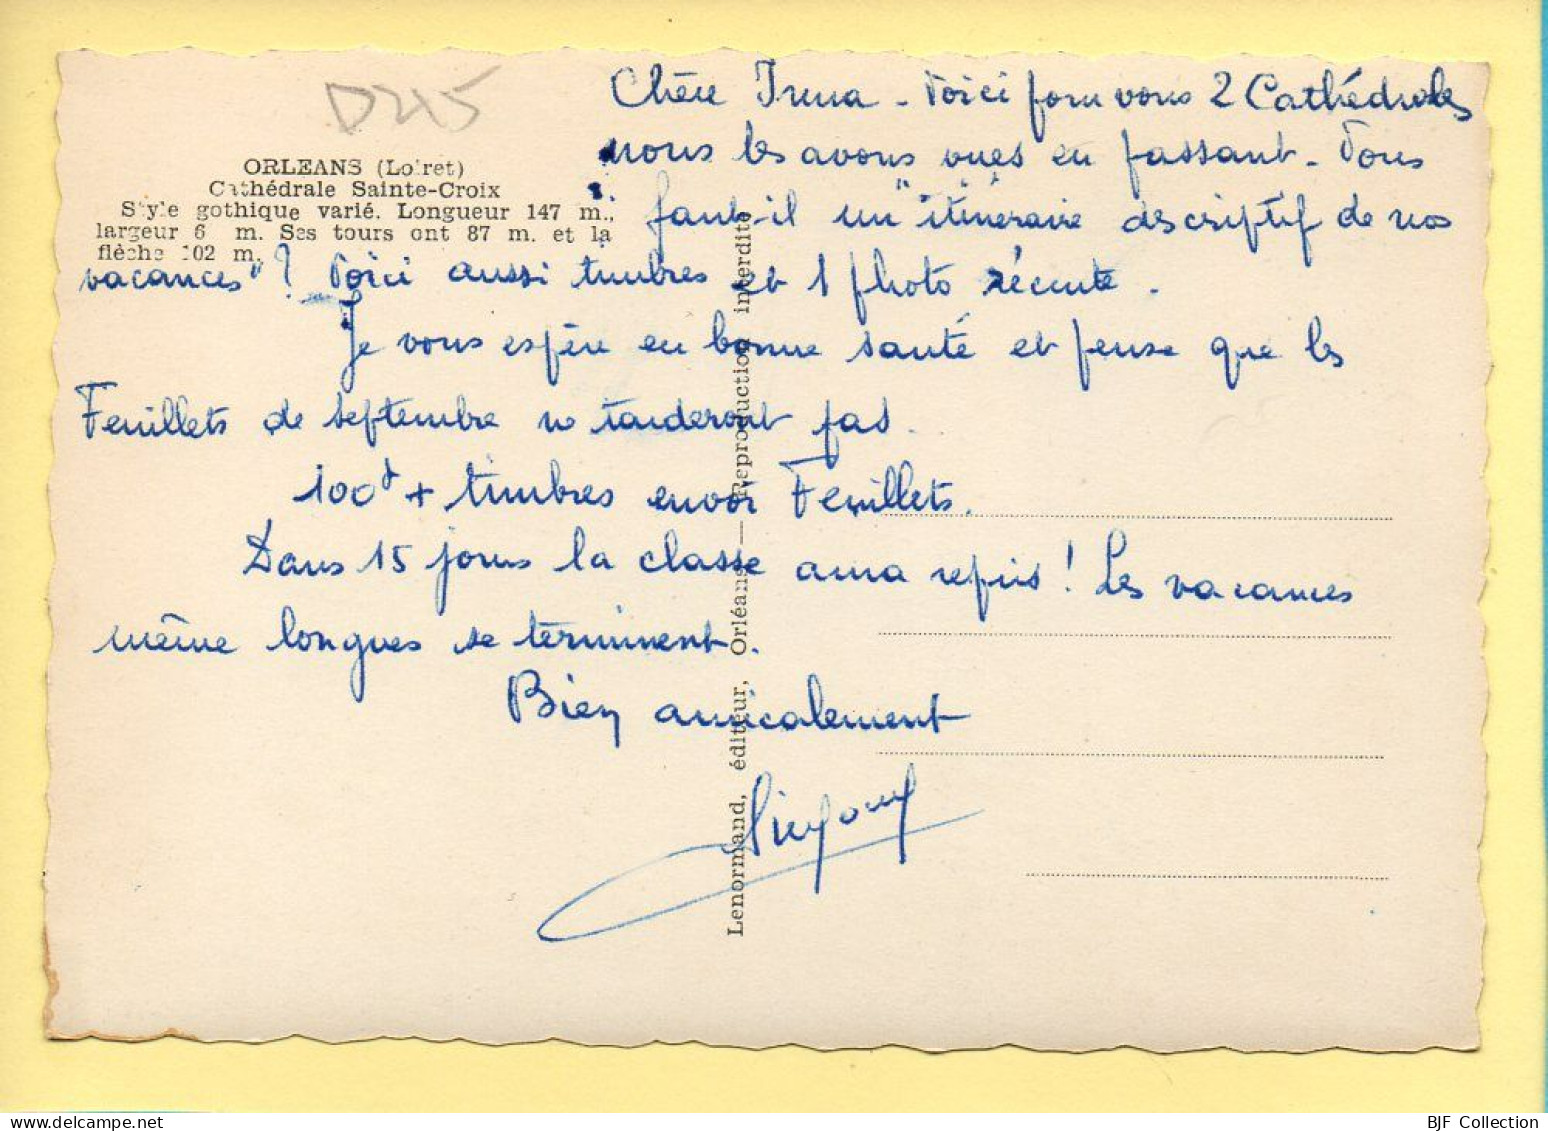 D45
ORLEANS (Loiret)
Cathédrale Sainte-Croix
Style gothique varié. Longueur 147 m.,
largeur 6 m. Ses tours ont 87 m. et la
flèche 102 m.
Chère Irma - Voici pour vous 2 Cathédrales
nous les avons vues en passant - Vous
faut-il un "itinéraire descriptif de nos
vacances" ? Voici aussi timbres et 1 photo récente.
Je vous espère en bonne santé et pense que les
Feuillets de septembre ne tarderont pas.
100 + timbres envoi Feuillets.
Dans 15 jours la classe aura repris ! Les vacances
même longues se terminent.
Bien amicalement
Lenormand, éditeur, Orléans — Reproduction interdite
BJF Collection